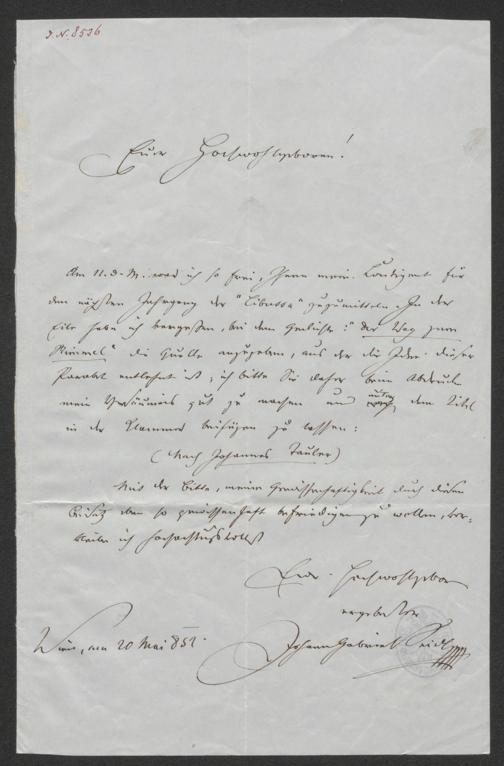 J. N. 8536
Euer Hochwohlgeboren!
Am 11. d. M. war ich so frei, Ihnen mein Contingent für
den nächsten Jahrgang der "Libussa" zuzumitteln. In der
Eile habe ich vergessen, bei dem Gedichte: "Der Weg zum
Himmel" die Quelle anzugeben, aus der die Idee dieser
Parabel entlehnt ist; ich bitte Sie daher beim Abdruck
mein Versäumnis gut zu machen und unter dem Titel
in der Klammer beifügen zu lassen:
(Nach Johannes Tauler)
Mit der Bitte, meine Gewissenhaftigkeit durch diesen
Beisatz eben so gewissenhaft befriedigen zu wollen, ver-
bleibe ich hochachtungsvollst
Euer Hochwohlgebor
ergebenster
Wien, am 20 Mai 851.
Johann Gabriel Seidl